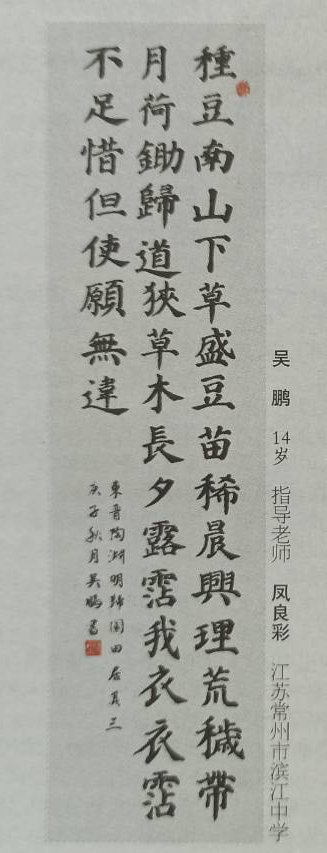 種豆南山下草盛豆苗稀晨興理荒穢帶
月荷鋤歸道狹草木長夕露霑我衣衣霑
不足惜但使願無違
東晉陶淵明歸園田居其三
庚子秋月吳鵬書
吴鹏 14岁 指导老师 凤良彩 江苏常州市滨江中学